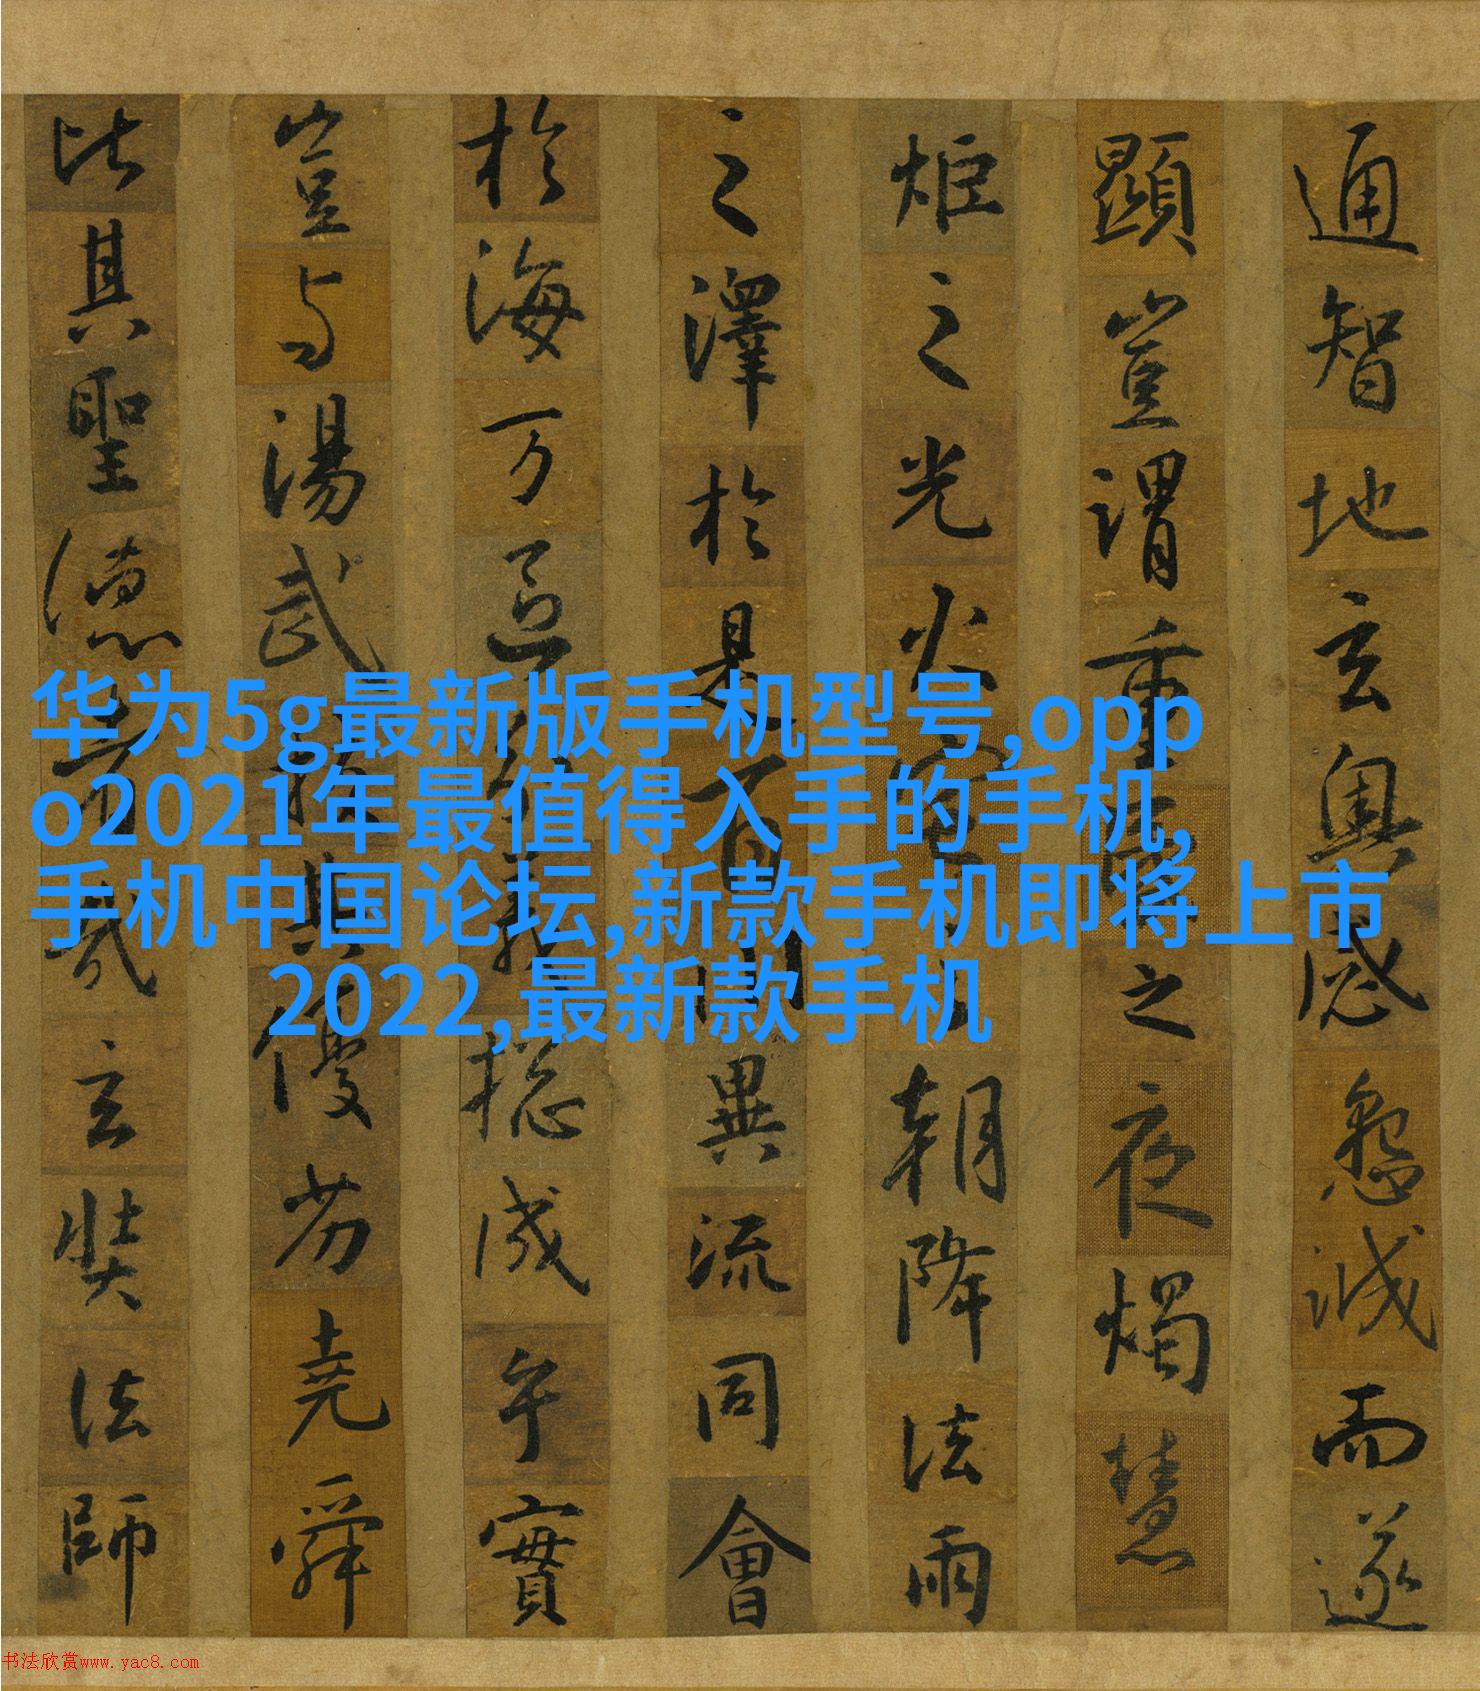 通智地玄奥感懇誠而遂
顯豈謂重昏之夜燭慧
炬之光火宅之朝降法雨
之澤於是百川異流同會
於海万區分義捴成乎實
豈与湯武挍其優劣堯舜
比其聖德者哉玄奘法師
华为5g最新版手机型号,opp
o2021年最值得入手的手机,
手机中国论坛,新款手机即将上市
2022,最新款手机
书法欣赏www.yac8.com